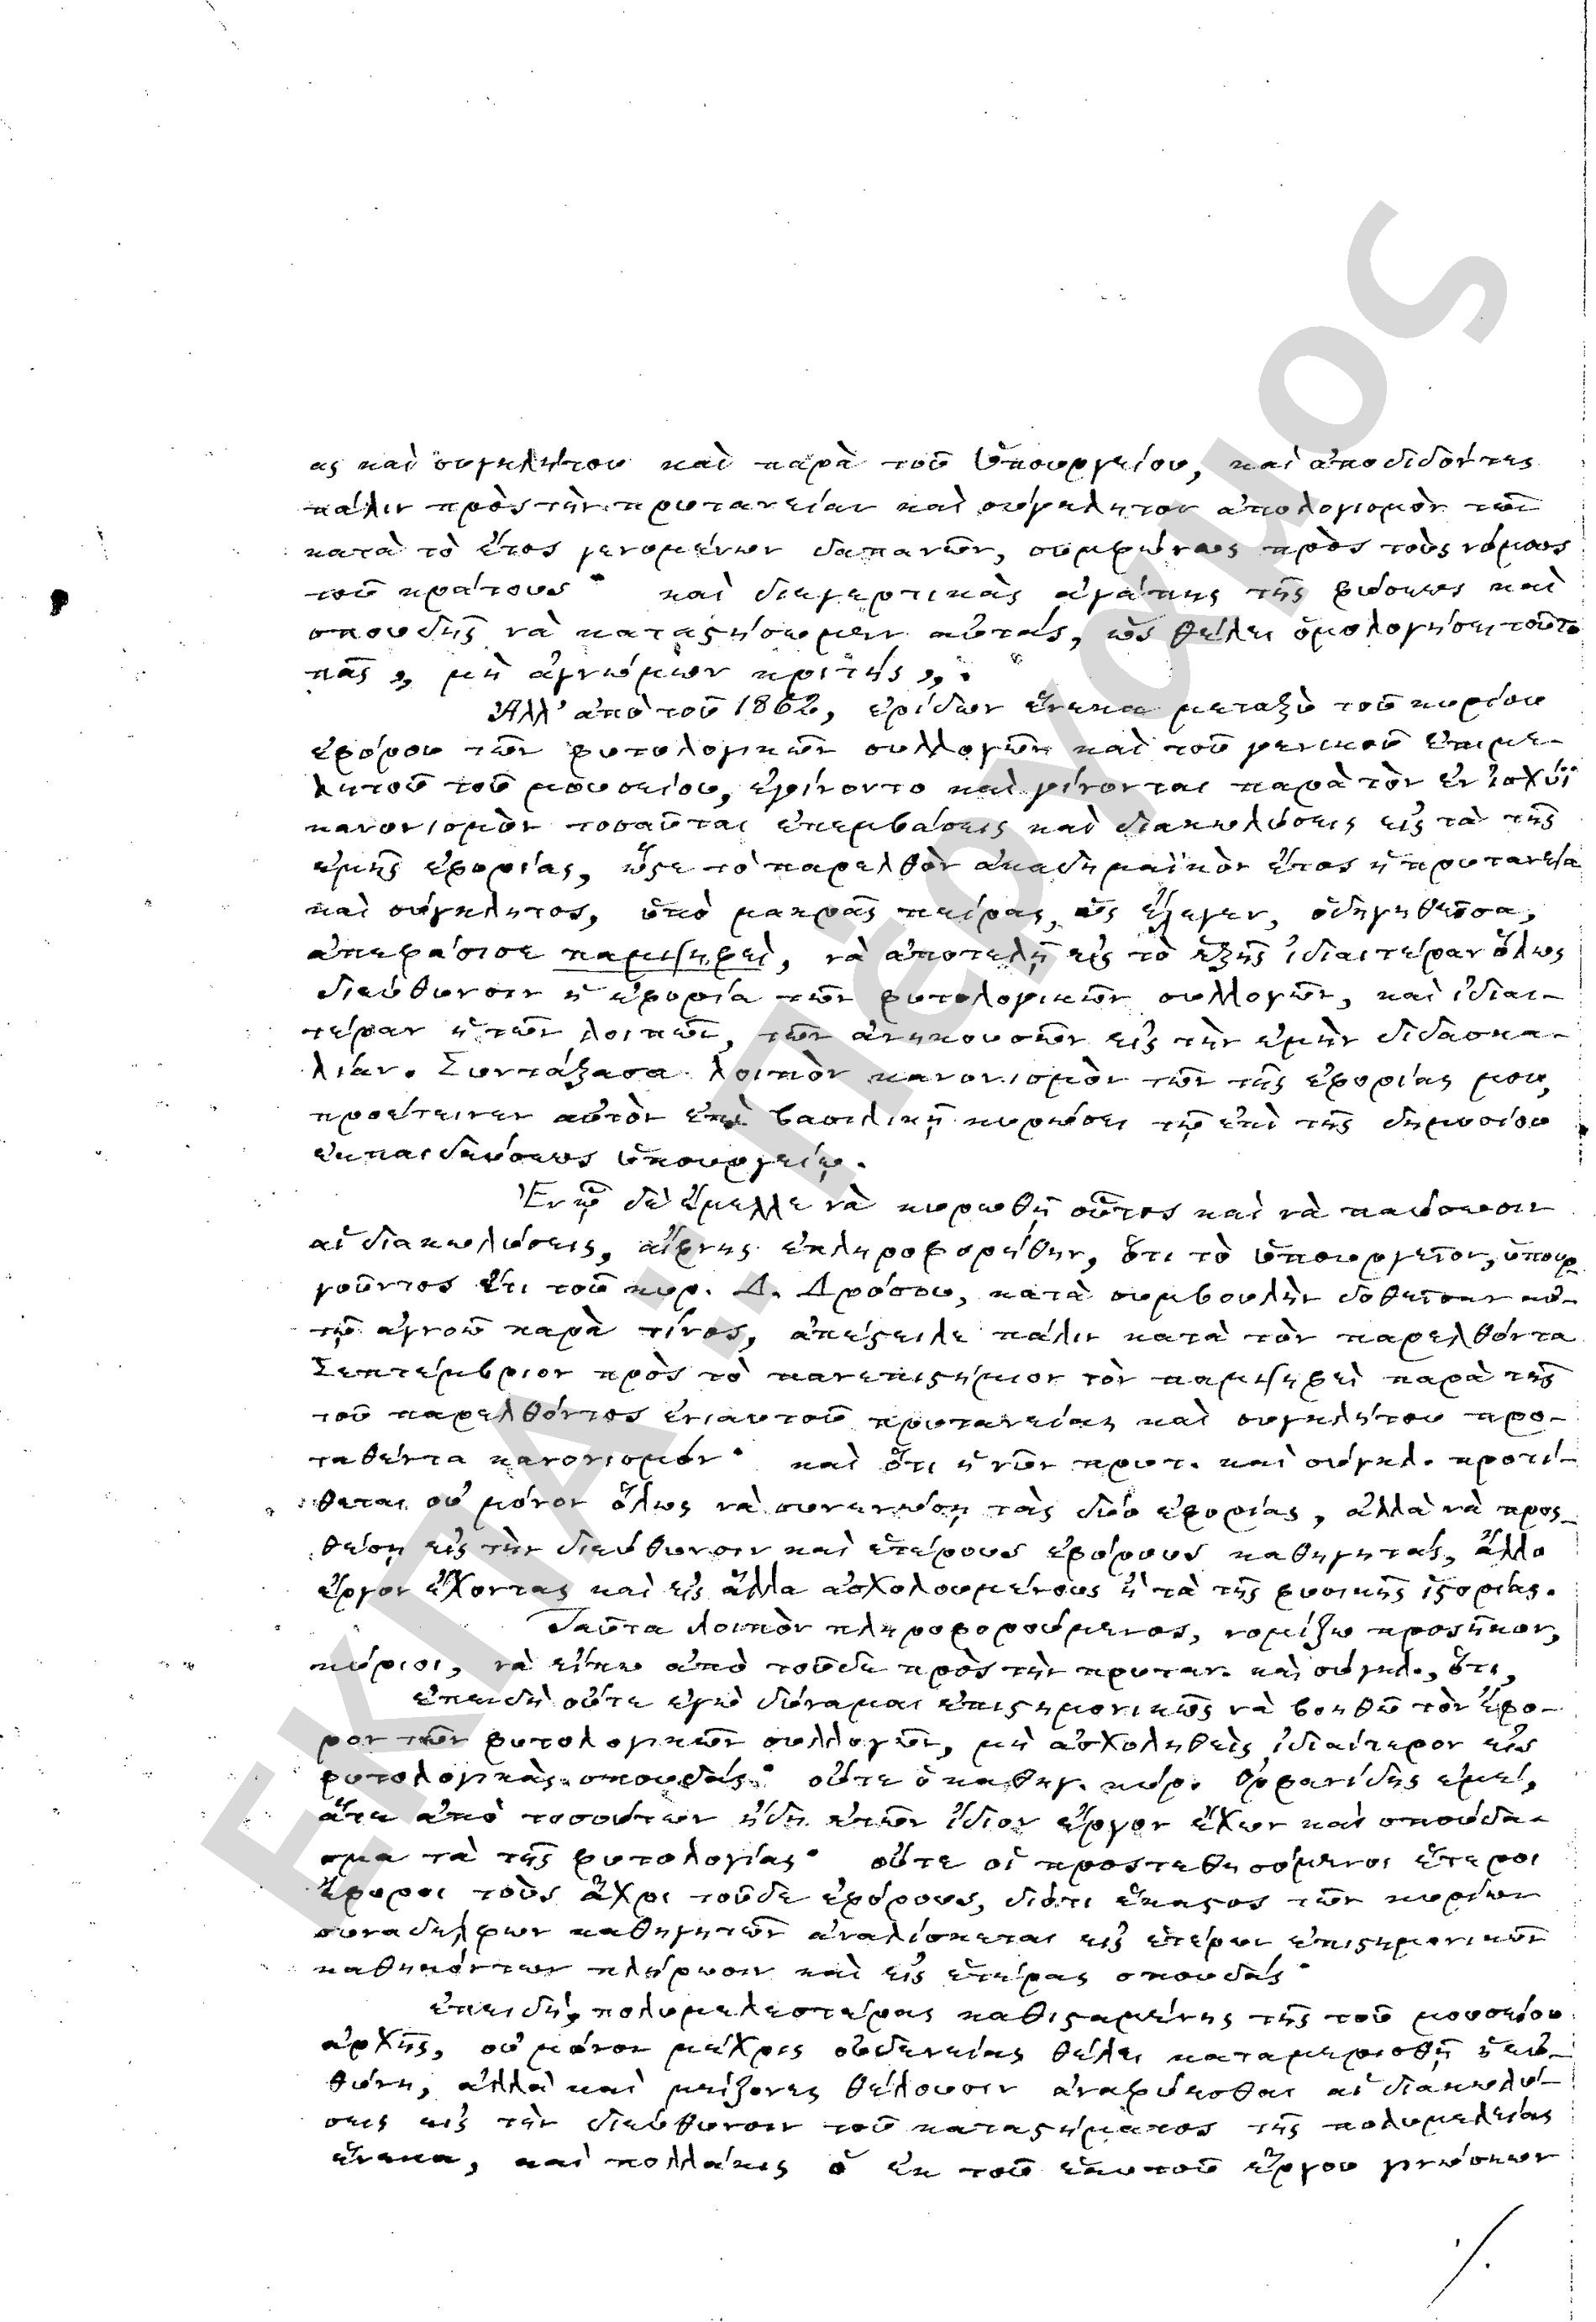 ας καὶ συγκλήτου καὶ παρὰ τοῦ ὑπουργείου, καὶ ἀποδιδόντες
πάλιν πρὸς τὴν πρυτανείαν καὶ σύγκλητον ἀπολογισμὸν τῶν
κατὰ τὸ ἔτος γενομένων δαπανῶν, συμφώνως πρὸς τοὺς νόμους
τοῦ κράτους· καὶ διεγερτικὰς ἀγάπης τῆς φύσεως καὶ
σπουδῆς νὰ καταστήσωμεν αὐτάς, ὡς θέλει ὁμολογήσει τοῦτο
πᾶς „ μὴ ἀγνώμων κριτής „.
Ἀλλ' ἀπὸ τοῦ 1862, ἐρίδων ἕνεκα μεταξὺ τοῦ κυρίου
ἐφόρου τῶν φυτολογικῶν συλλογῶν καὶ τοῦ γενικοῦ ἐπιμε-
λητοῦ τοῦ μουσείου, ἐγίνοντο καὶ γίνονται παρὰ τὸν ἐν ἰσχύϊ
κανονισμὸν τοσαῦται ἐπεμβάσεις καὶ διακωλύσεις εἰς τὰ τῆς
ἐμῆς ἐφορίας, ὥστε τὸ παρελθὸν ἀκαδημαϊκὸν ἔτος ἡ πρυτανεία
καὶ σύγκλητος, ὑπὸ μακρᾶς πείρας, ὡς ἔλεγεν, ὁδηγηθεῖσα,
ἀπεφάσισε παμψηφεί, νὰ ἀποτελῇ εἰς τὸ ἑξῆς ἰδιαιτέραν ὅλως
διεύθυνσιν ἡ ἐφορία τῶν φυτολογικῶν συλλογῶν, καὶ ἰδιαι-
τέραν ἡ τῶν λοιπῶν, τῶν ἀνηκουσῶν εἰς τὴν ἐμὴν διδασκα-
λίαν. Συντάξασα λοιπὸν κανονισμὸν τῶν τῆς ἐφορίας μου,
προέτεινεν αὐτὸν ἐπὶ βασιλικῇ κυρώσει τῷ ἐπὶ τῆς δημοσίου
ἐκπαιδεύσεως ὑπουργείῳ.
Ἐν ᾧ δὲ ἔμελλε νὰ κυρωθῇ οὗτος καὶ νὰ παύσωσιν
αἱ διακωλύσεις, αἴφνης ἐπληροφορήθην, ὅτι τὸ ὑπουργεῖον, ὑπουρ
γοῦντος ἔτι τοῦ κυρ. Δ. Δρόσου, κατὰ συμβουλὴν δοθεῖσαν αὐ-
τῷ ἀγνοῶ παρὰ τίνος, ἀπέστειλε πάλιν κατὰ τὸν παρελθόντα
Σεπτέμβριον πρὸς τὸ πανεπιστήμιον τὸν παμψηφεὶ παρὰ τῆς
τοῦ παρελθόντος ἐνιαυτοῦ πρυτανείας καὶ συγκλήτου προ-
ταθέντα κανονισμόν· καὶ ὅτι ἡ νῦν πρυτ. καὶ σύγκλ. προτί-
θεται οὐ μόνον ὅλως νὰ συνενώσῃ τὰς δύο ἐφορίας, ἀλλὰ νὰ προς-
θέσῃ εἰς τὴν διεύθυνσιν καὶ ἑτέρους ἐφόρους καθηγητάς, ἄλλο
ἔργον ἔχοντας καὶ εἰς ἄλλα ἀσχολουμένους ἢ τὰ τῆς φυσικῆς ἱστορίας.
Ταῦτα λοιπὸν πληροφορούμενος, νομίζω προσῆκον,
κύριοι, νὰ εἴπω ἀπὸ τοῦδε πρὸς τὴν πρυταν. καὶ σύγκλ., ὅτι,
ἐπειδὴ οὔτε ἐγὼ δύναμαι ἐπιστημονικῶς νὰ βοηθῶ τὸν ἔφο-
ρον τῶν φυτολογικῶν συλλογῶν, μὴ ἀσχοληθεὶς ἰδιαίτερον εἰς
φυτολογικὰς σπουδάς· οὔτε ὁ καθηγ. κύρ. Ὀρφανίδης ἐμέ,
ἅτε ἀπὸ τοσούτων ἤδη ἐτῶν ἴδιον ἔργον ἔχων καὶ σπούδα-
σμα τὰ τῆς φυτολογίας· οὔτε οἱ προστεθησόμενοι ἕτεροι
ἔφοροι τοὺς ἄχρι τοῦδε ἐφόρους, διότι ἕκαστος τῶν κυρίων
συναδέλφων καθηγητῶν ἀναλίσκεται εἰς ἑτέρων ἐπιστημονικῶν
καθηκόντων πλήρωσιν καὶ εἰς ἑτέρας σπουδάς·
ἐπειδή, πολυμελεστέρας καθισταμένης τῆς τοῦ μουσείου
ἀρχῆς, οὐ μόνον μέχρις οὐδενείας θέλει καταμερισθῆ ἡ εὐ-
θύνη, ἀλλὰ καὶ μείζονες θέλουσιν ἀναφύεσθαι αἱ διακωλύ-
σεις εἰς τὴν διεύθυνσιν τοῦ καταστήματος τῆς πολυμελείας
ἕνεκα, καὶ πολλάκις ὁ ἐκ τοῦ ἑαυτοῦ ἔργου γινώσκων
./.